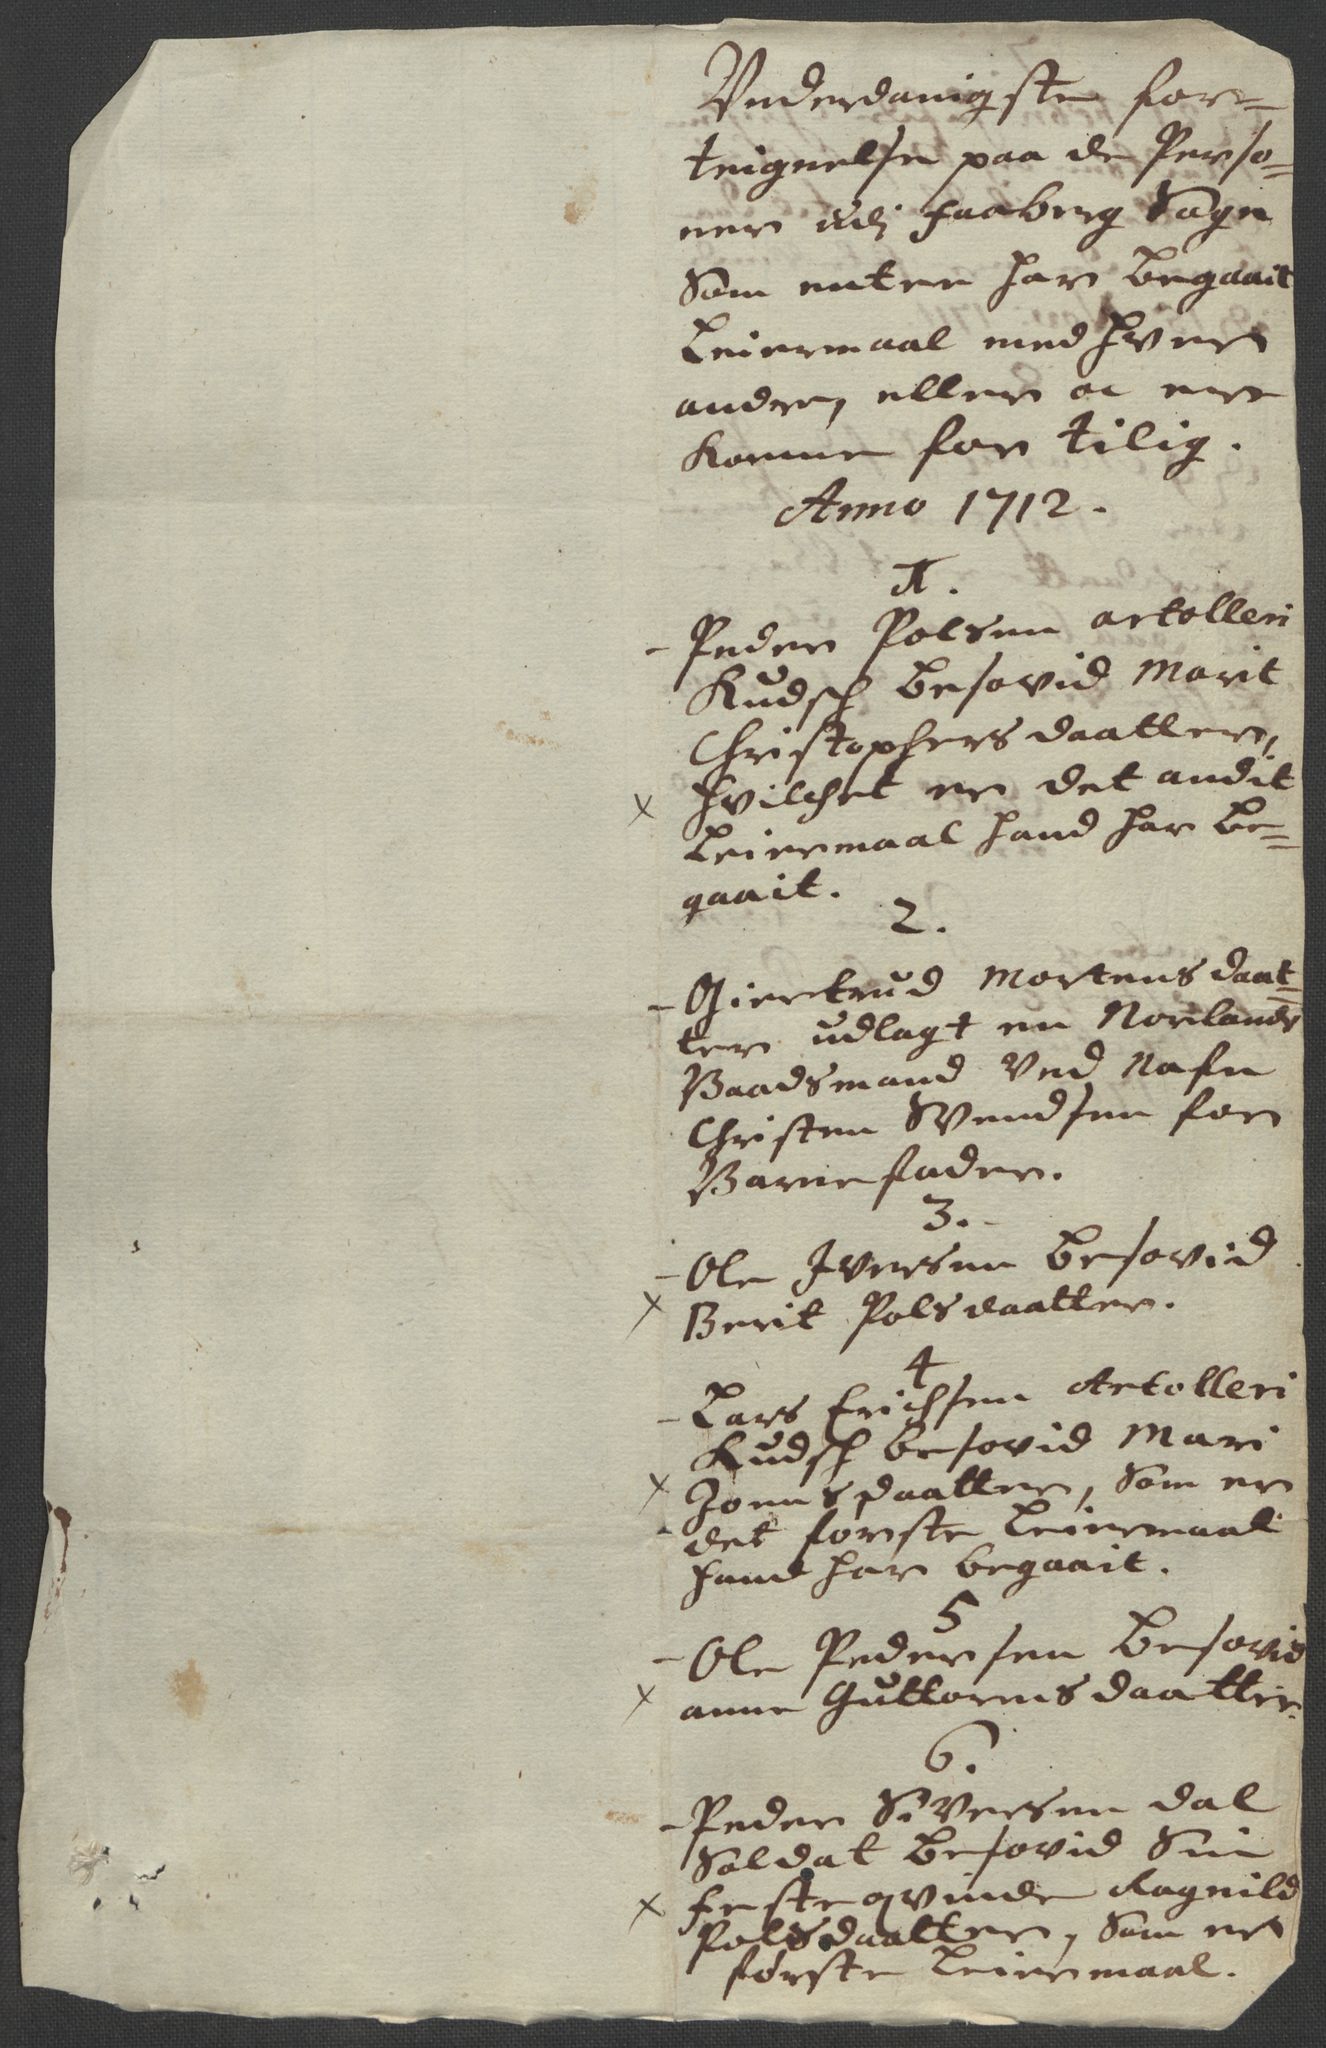 Underdanigste for-
teignelse paa de Perso-
ner udj Faaberg Sogn
Som enten har begaait
Leiermaal med hver
andre, eller oc ere
komne for tilig.
Anno 1712.
1.
- Peder Polsen artolleri
Kudsk besovid Marit
Christophers daatter,
x hvilchet er det andit
Leiermaal hand har be-
gaait.
2.
- Giertrud Mortens daat-
ter udlagt en Norlands
Baadsmand Ved Nafn
Christen Svendsen for
Barne fader.
3.
- Ole Iversen besovid
x Berit Pols daatter.
4
- Lars Erichsen Artolleri
Kudsk besovid Mari
x Joens daatter, Som er
det første Leiermaal
hand har begaait.
5
- Ole Pedersen besovid
x anne Guttorms daatter.
6.
- Peder Siversen dal
Soldat besovid Sin
x feste qvinde Ragnild
Polsdaatter, Som er
første Leiermaal.